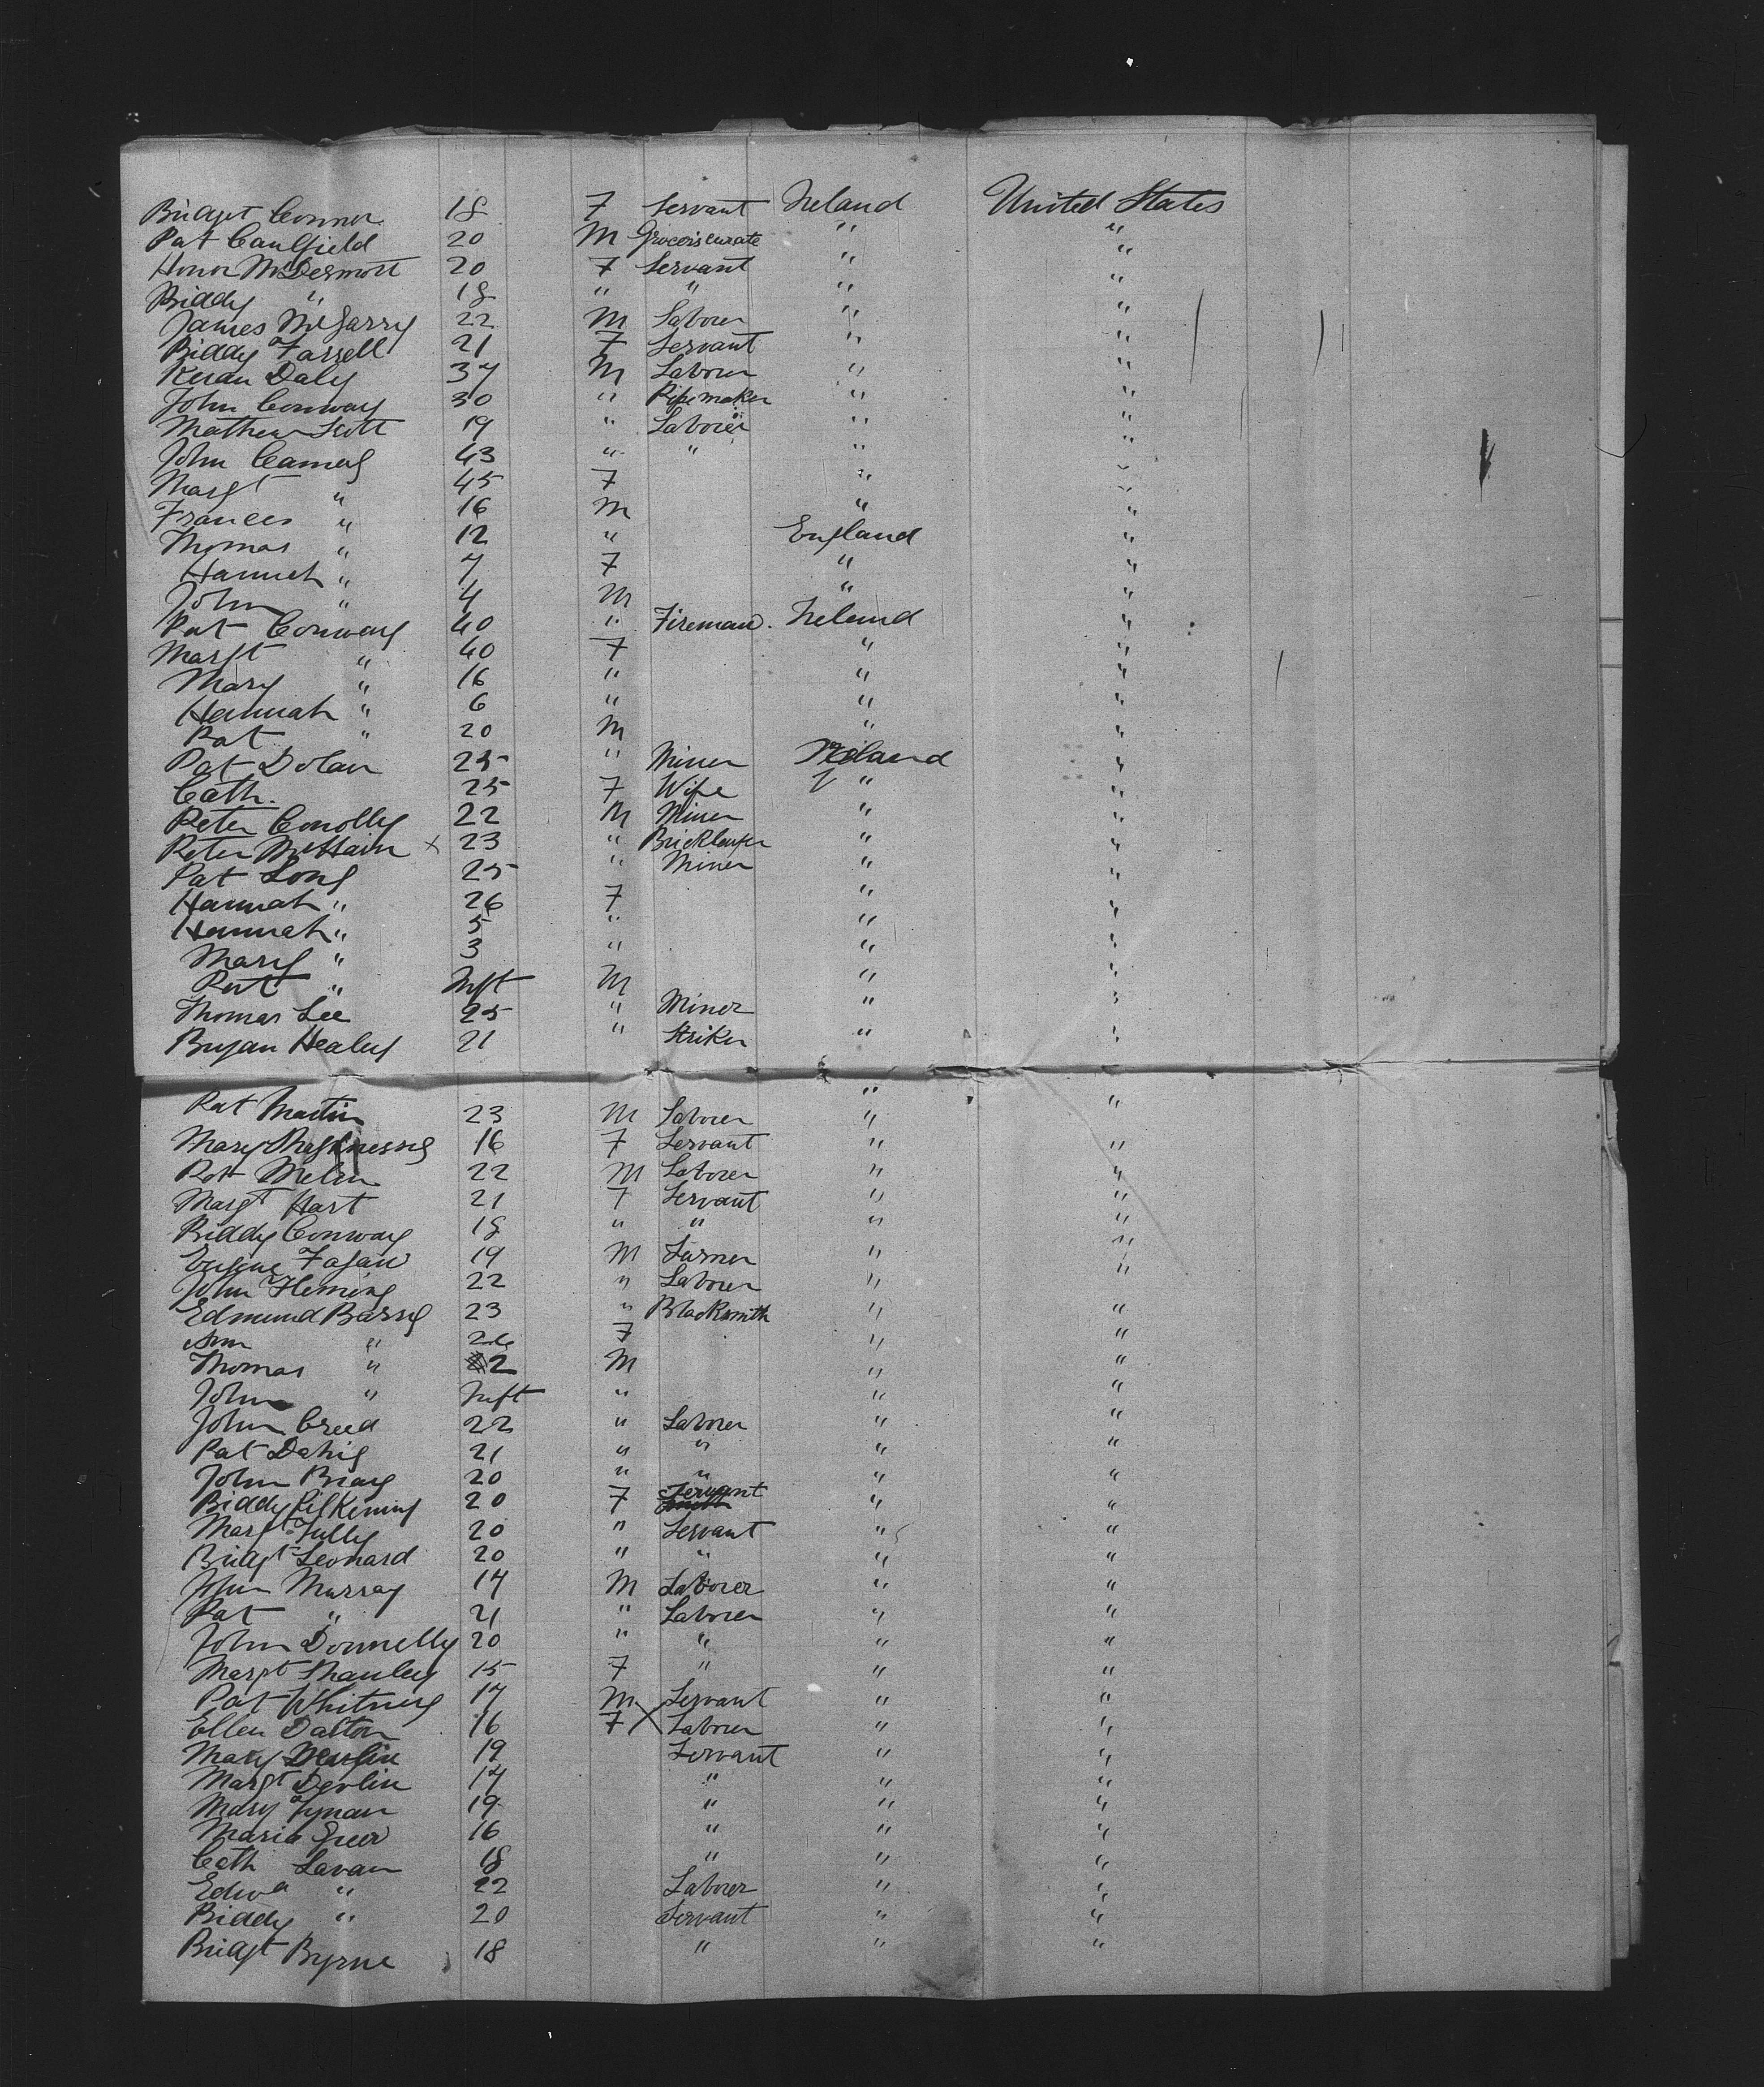 Bridget Connor 18 F Servant Ireland United States
Pat Caulfield 20 M Grocers curate " "
Honor McDermott 20 F Servant " "
Biddy " 18 " " " "
James McGarry 22 M Laborer " "
Biddy Farrell 21 F Servant " "
Kieran Daly 37 M Laborer " "
John Conway 30 " Pipemaker " "
Mathew Scott 19 " Laborer " "
John 43 " " " "
Margt " 45 F " "
Frances " 16 M " "
Thomas " 12 " England "
Hannah " 7 F " "
John " 4 M " "
Pat Conway 40 " Fireman. Ireland "
Margt " 40 F " "
Mary " 16 " " "
Hannah " 6 " " "
Pat " 20 M " "
Pat Dolan 25 " Miner Ireland "
Cath. 25 F Wife " "
Peter Conolly 22 M Miner " "
Peter x 23 " Bricklayer " "
Pat Long 25 " Miner " "
Hannah " 26 F " "
Hannah " 5 " " "
Mary " 3 " " "
Pat " Inft M " "
Thomas Lee 25 " Miner " "
Bryan Healey 21 " Striker " "
Pat Martin 23 M Laborer " "
Mary 16 F Servant " "
22 M Laborer " "
Margt Hart 21 F Servant " "
Biddy Conway 18 " " " "
Eugine Fagan 19 M " "
John Fleming 22 " Laborer " "
Edmund Barry 23 " Blacksmith " "
Ann " 26 F " "
Thomas " 2 M " "
John " Inft " " "
John Creed 22 " Laborer " "
Pat 21 " " " "
John 20 " " " "
Biddy 20 F Servant " "
Margt Tully 20 " Servant " "
Bridgt Leonard 20 " " " "
John Murray 17 M Laborer " "
Pat " 21 " Laborer " "
John Donnelly 20 " " " "
Margt 15 F " " "
Pat Whitney 17 M Servant " "
Ellen Dalton 16 F X Laborer " "
Mary 19 Servant " "
Margt Devlin 17 " " "
Mary 19 " " "
Maria Greer 16 " " "
Cath Lavan 18 " " "
Edwd " 22 Laborer " "
Biddy " 20 Servant " "
Bridgt Byrne 18 " " "